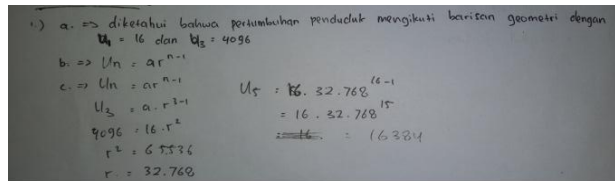 1.) a. => diketahui bahwa pertumbuhan penduduk mengikuti barisan geometri dengan
U1 = 16 dan U3 = 4096
b. => Un = ar^n-1
c. => Un = ar^n-1
U3 = a.r^3-1
4096 = 16.r^2
r^2 = 65536
r = 32.768
U5 = 16. 32.768^16-1
= 16. 32.768^15
= 16384